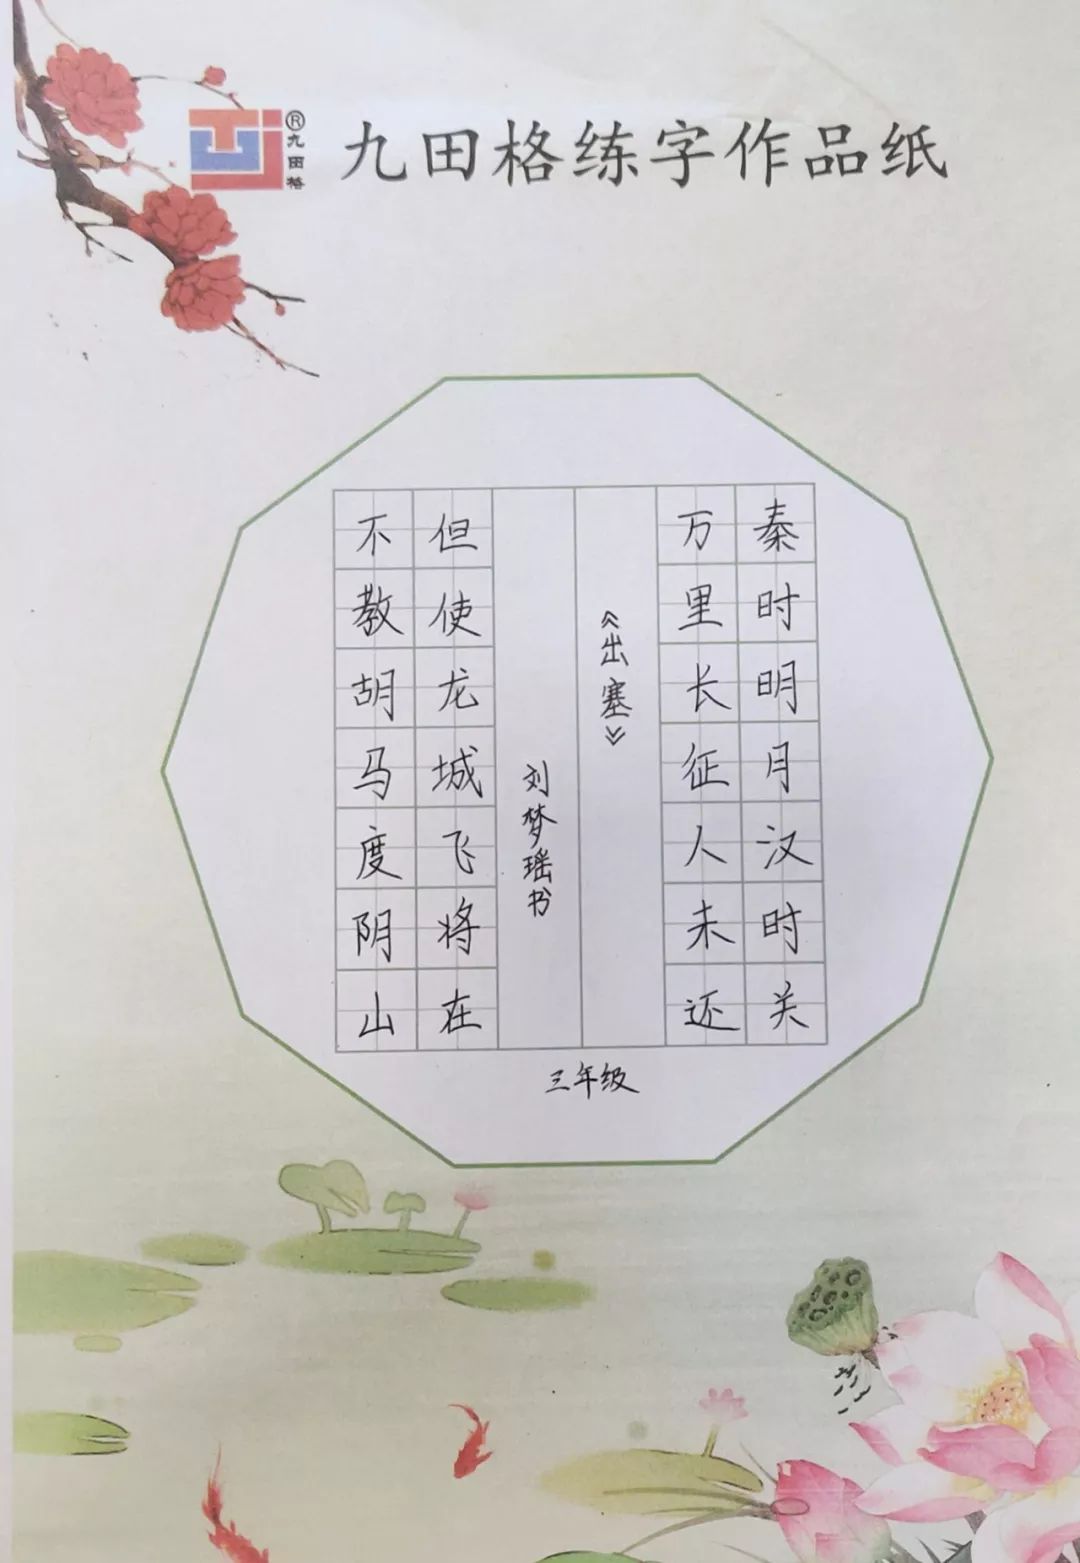 九田格练字作品纸
®
九田格
秦时明月汉时关
万里长征人未还
《出塞》
刘梦瑶书
但使龙城飞将在
不教胡马度阴山
三年级